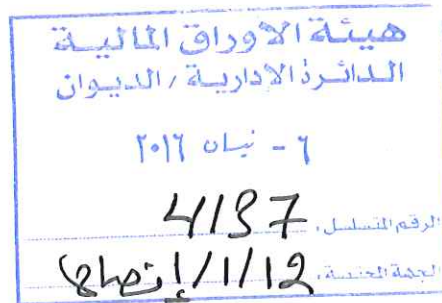 هيئة الأوراق المالية
الدائرة الادارية / الديوان
٦ - نيسان ٢٠١٦
الرقم المتسلسل، 4137
الجهة المختصة، 12/1/إفصاح